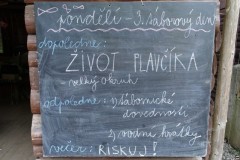 pondělí - 3. táborový den
dopoledne:
ŽIVOT PLAVČÍKA
velký okruh
odpoledne: 1) tábornické
dovednosti
2) vodní hrátky
večer: RISKUJ!